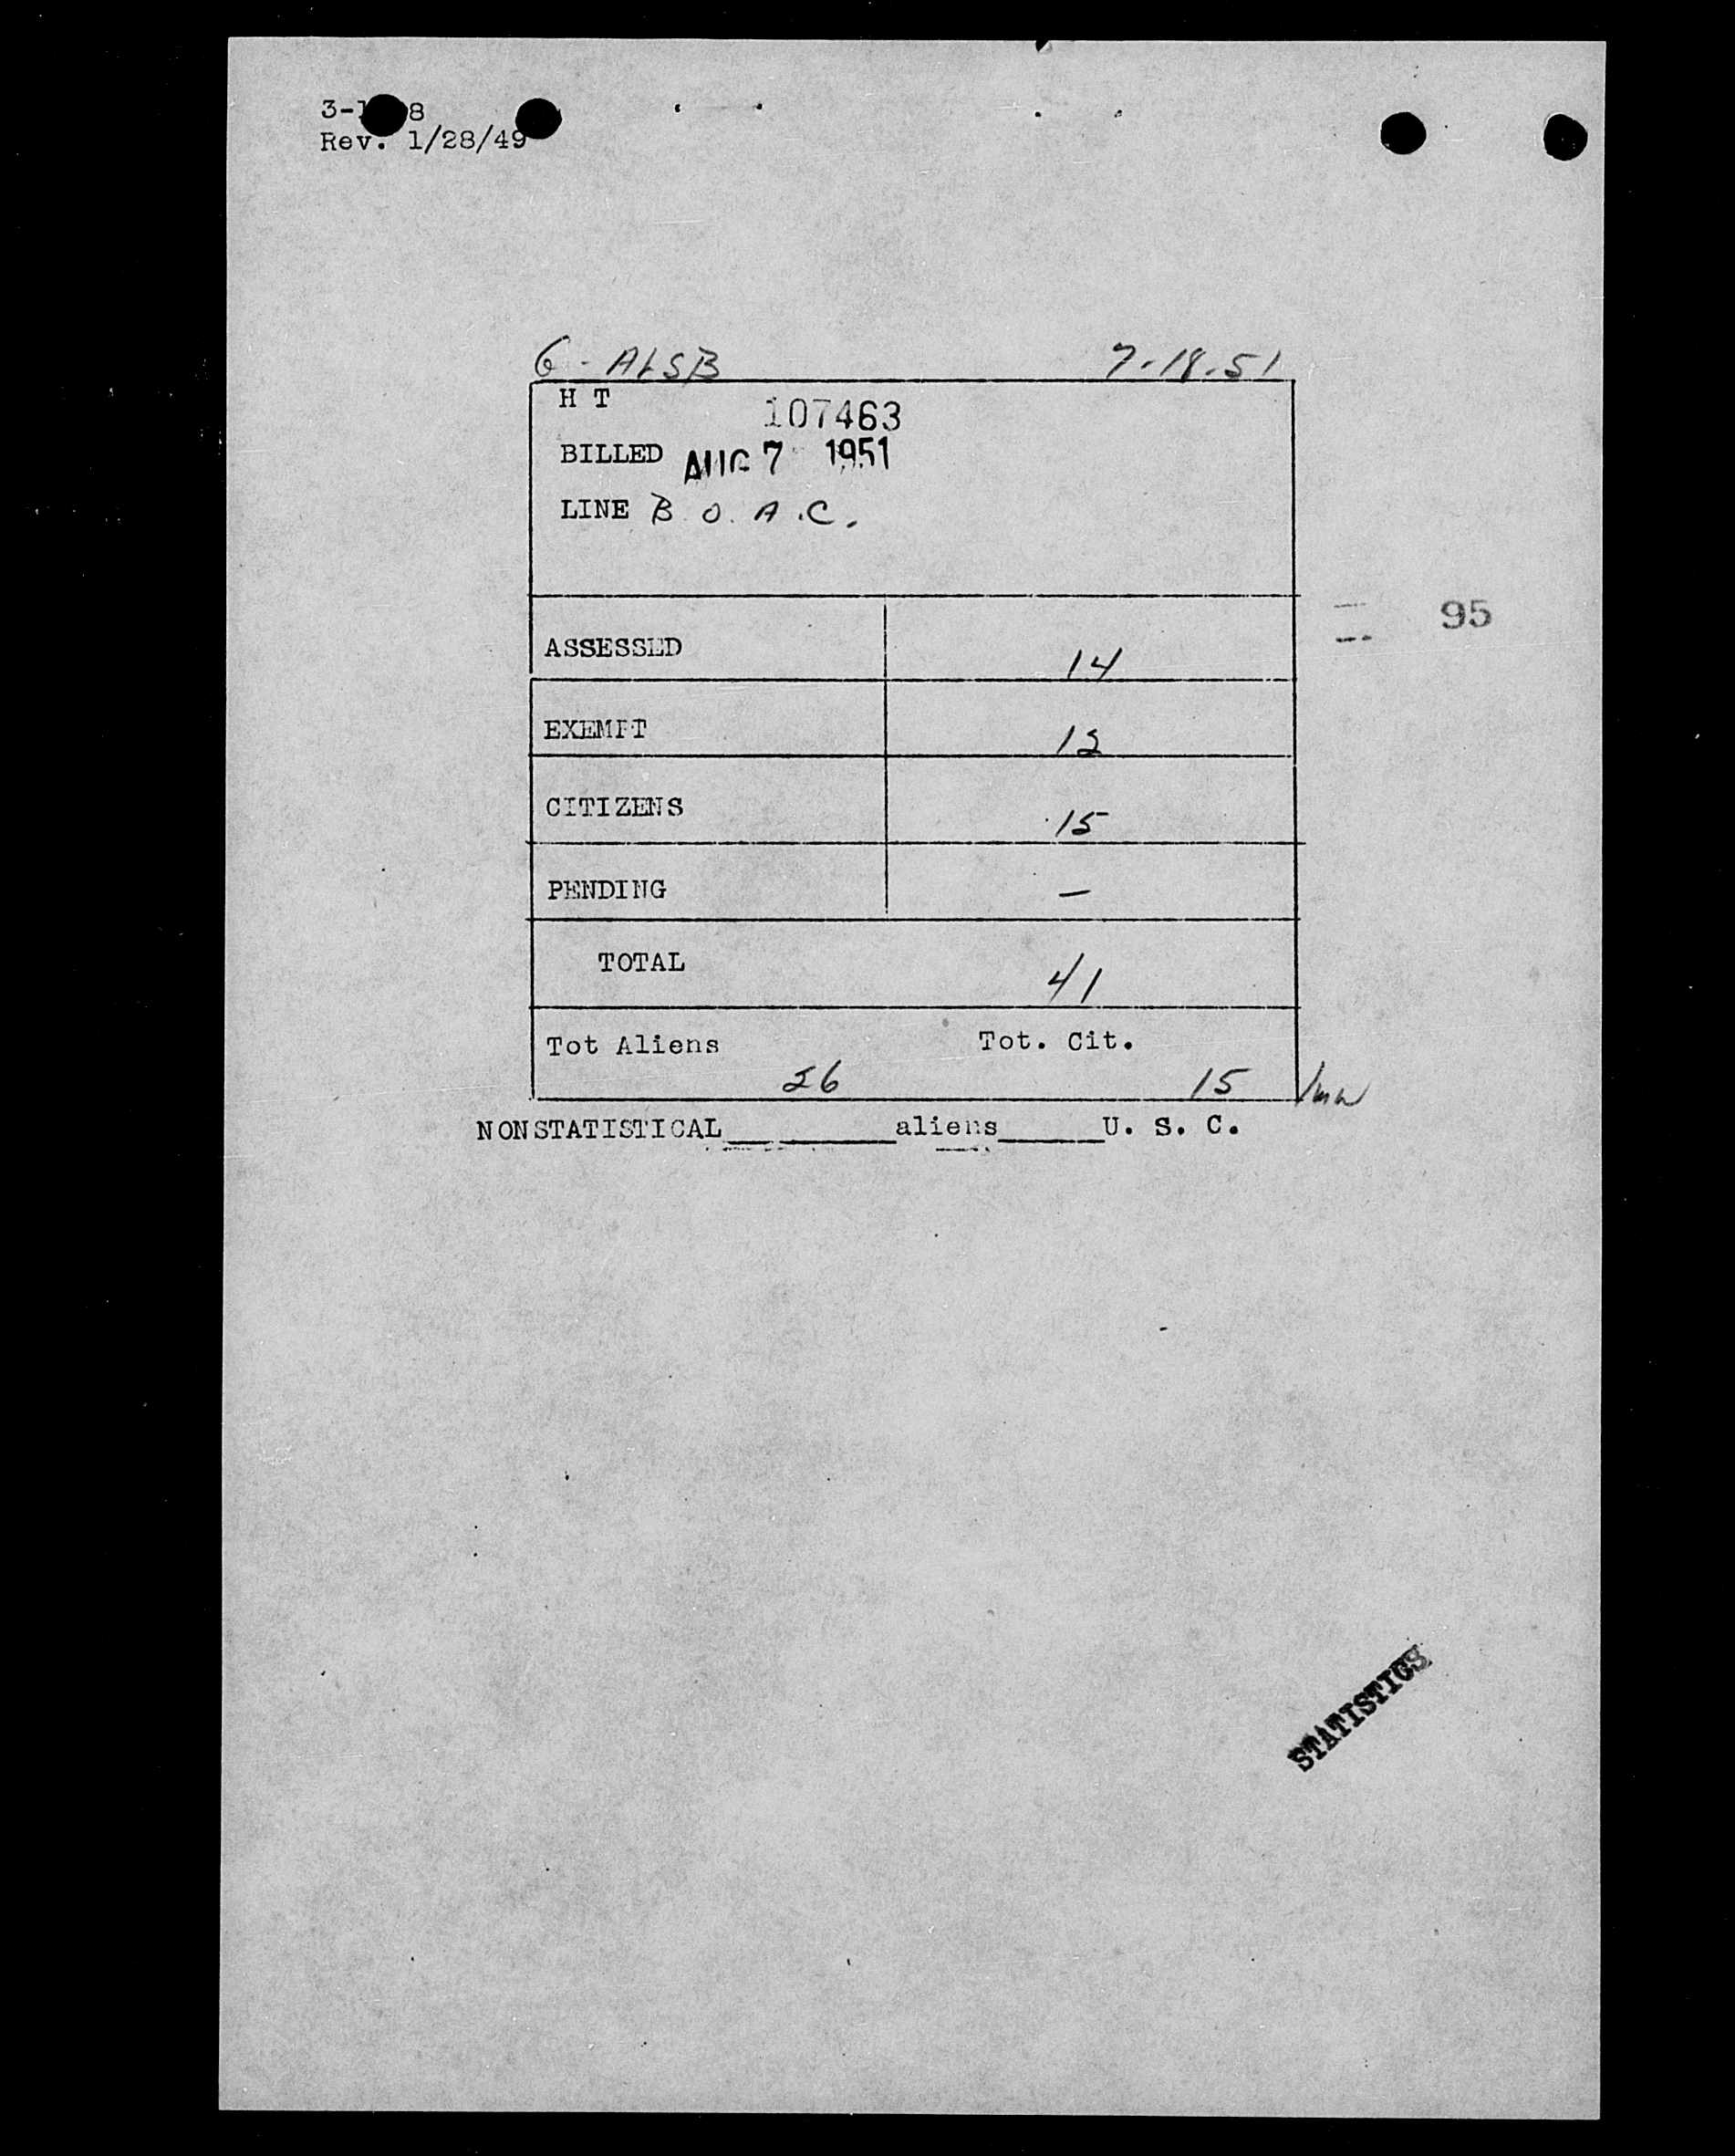 8
Rev. 1/28/49
G-ALSB 7-18-51
H T 107463
BILLED AUG 7 1951
LINE B.O.A.C.
ASSESSED 14
95
EXEMPT 12
CITIZENS 15
PENDING —
TOTAL 41
Tot Aliens Tot. Cit.
26 15
NONSTATISTICAL ______ aliens ______ U. S. C.
STATISTICS